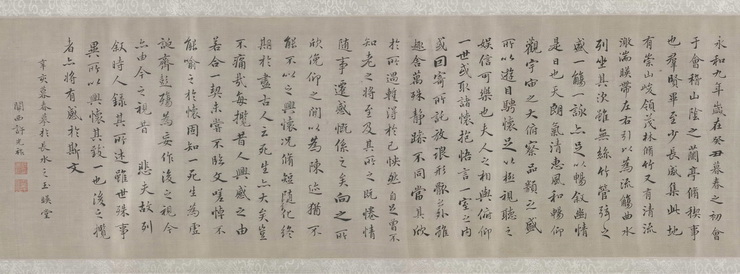 永和九年歲在癸丑暮春之初會
于會稽山陰之蘭亭脩稧事
也羣賢畢至少長咸集此地
有崇山峻領茂林脩竹又有清流
激湍暎帶左右引以為流觴曲水
列坐其次雖無絲竹管弦之
盛一觴一詠亦足以暢敘幽情
是日也天朗氣清惠風和暢仰
觀宇宙之大俯察品類之盛
所以遊目騁懷足以極視聽之
娛信可樂也夫人之相與俯仰
一世或取諸懷抱悟言一室之內
或因寄所託放浪形骸之外雖
趣舍萬殊靜躁不同當其欣
於所遇暫得於己怏然自足曾不
知老之將至及其所之既惓情
隨事遷感慨係之矣向之所
欣俛仰之間以為陳迹猶不
能不以之興懷況脩短隨化終
期於盡古人云死生亦大矣豈
不痛哉每攬昔人興感之由
若合一契未嘗不臨文嗟悼不
能喻之於懷固知一死生為虛
誕齊彭殤為妄作後之視今
亦由今之視昔 悲夫故列
敘時人錄其所述雖世殊事
異所以興懷其致一也後之攬
者亦將有感於斯文
辛亥暮春摹於長水之玉暎堂
關西許光祚